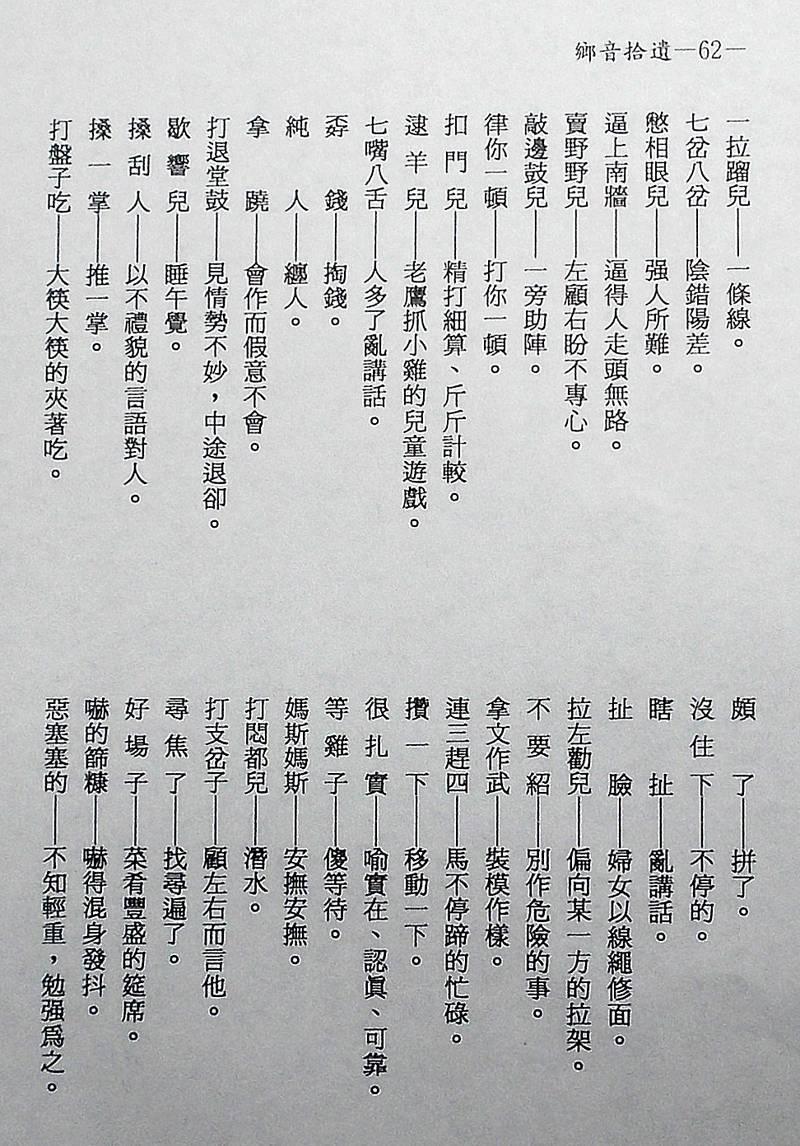 鄉音拾遺—62—
一拉蹓兒——一條線。
七岔八岔——陰錯陽差。
憋相眼兒——强人所難。
逼上南牆——逼得人走頭無路。
賣野野兒——左顧右盼不專心。
敲邊鼓兒——一旁助陣。
律你一頓——打你一頓。
扣門兒——精打細算、斤斤計較。
逮羊兒——老鷹抓小雞的兒童遊戲。
七嘴八舌——人多了亂講話。
孬錢——掏錢。
純人——纏人。
拿蹺——會作而假意不會。
打退堂鼓——見情勢不妙，中途退卻。
歇響兒——睡午覺。
搡刮人——以不禮貌的言語對人。
搡一掌——推一掌。
打盤子吃——大筷大筷的夾著吃。
頗了——拼了。
沒住下——不停的。
瞎扯——亂講話。
扯臉——婦女以線繩修面。
拉左勸兒——偏向某一方的拉架。
不要紹——別作危險的事。
拿文作武——裝模作樣。
連三趕四——馬不停蹄的忙碌。
攢一下——移動一下。
很扎實——喻實在、認眞、可靠。
等雞子——傻等待。
媽斯媽斯——安撫安撫。
打悶都兒——潛水。
打支岔子——顧左右而言他。
尋焦了——找尋遍了。
好場子——菜肴豐盛的筵席。
嚇的篩糠——嚇得混身發抖。
惡塞塞的——不知輕重，勉强爲之。